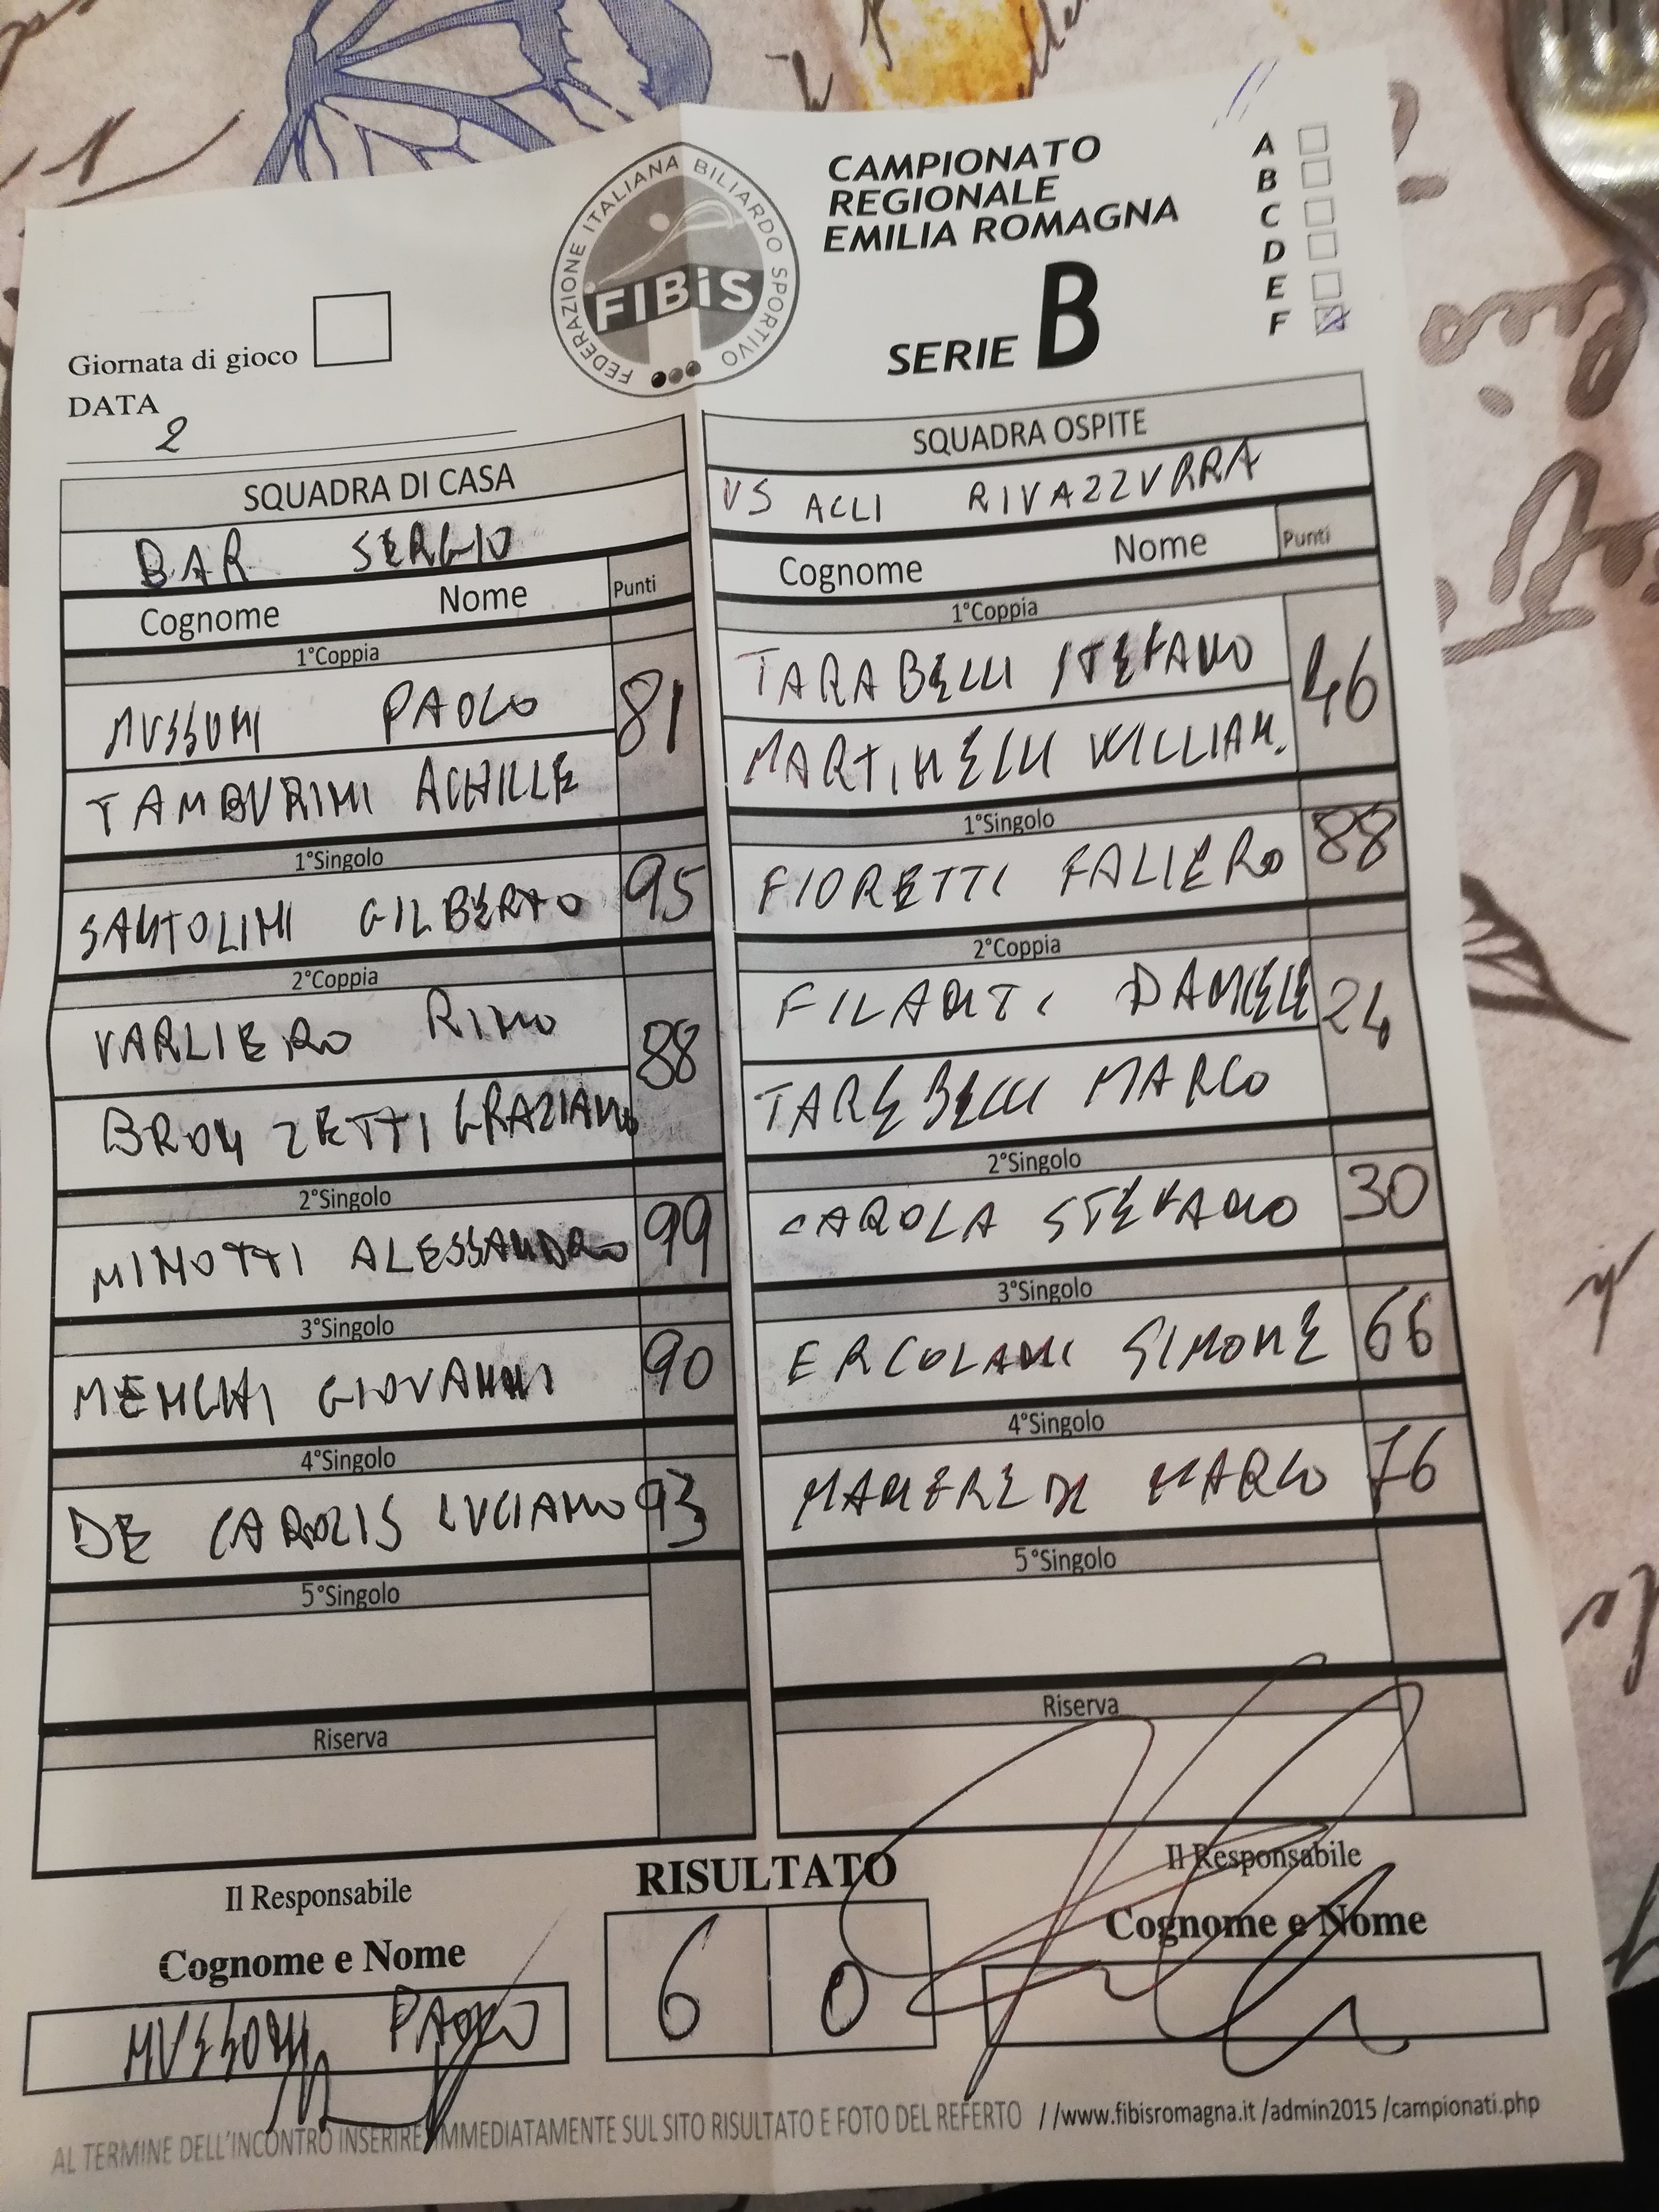 FEDERAZIONE ITALIANA BILIARDO SPORTIVO
FIBiS
CAMPIONATO
REGIONALE
EMILIA ROMAGNA
SERIE B
A
B
C
D
E
F
Giornata di gioco
DATA
2
SQUADRA DI CASA
BAR SERGIO
Cognome Nome Punti
1°Coppia
MUSSONI PAOLO 81
TAMBURINI ACHILLE
1°Singolo
SANTOLINI GILBERTO 95
2°Coppia
VARLIERO RINO 88
BRONZETTI GRAZIANO
2°Singolo
MINOTTI ALESSANDRO 99
3°Singolo
MENGHI GIOVANNI 90
4°Singolo
DE CAROLIS LUCIANO 93
5°Singolo
Riserva
SQUADRA OSPITE
VS ACLI RIVAZZURRA
Cognome Nome Punti
1°Coppia
TARABELLI STEFANO 46
MARTINELLI WILLIAM.
1°Singolo
FIORETTI FALIERO 88
2°Coppia
DANIELE 24
TAREBELLI MARCO
2°Singolo
CAROLA STEFANO 30
3°Singolo
ERCOLANI SIMONE 66
4°Singolo
MARCO 76
5°Singolo
Riserva
RISULTATO
6 0
Il Responsabile
Cognome e Nome
MUSSONI PAOLO
Il Responsabile
Cognome e Nome
AL TERMINE DELL'INCONTRO INSERIRE IMMEDIATAMENTE SUL SITO RISULTATO E FOTO DEL REFERTO //www.fibisromagna.it /admin2015 /campionati.php